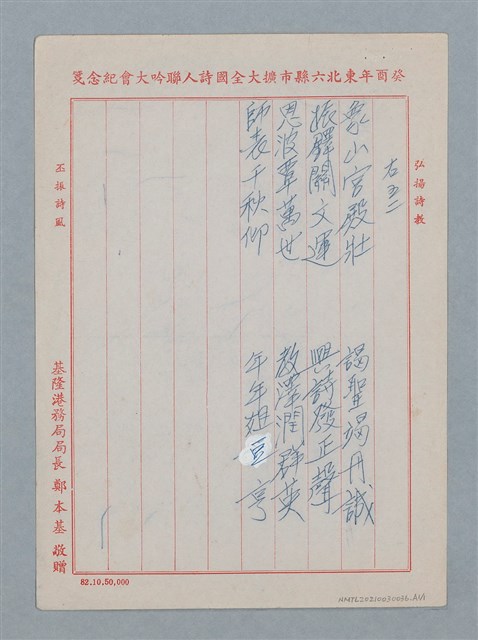 癸酉年東北六縣市擴大全國詩人聯吟大會紀念箋
弘揚詩教
右五二
象山宮殿壯 謁聖竭丹誠
振鐸關文運 興詩發正聲
恩波覃萬世 教澤潤群英
師表千秋仰 年年俎豆亨
丕振詩風
基隆港務局局長 鄭本基 敬贈
82.10.50,000